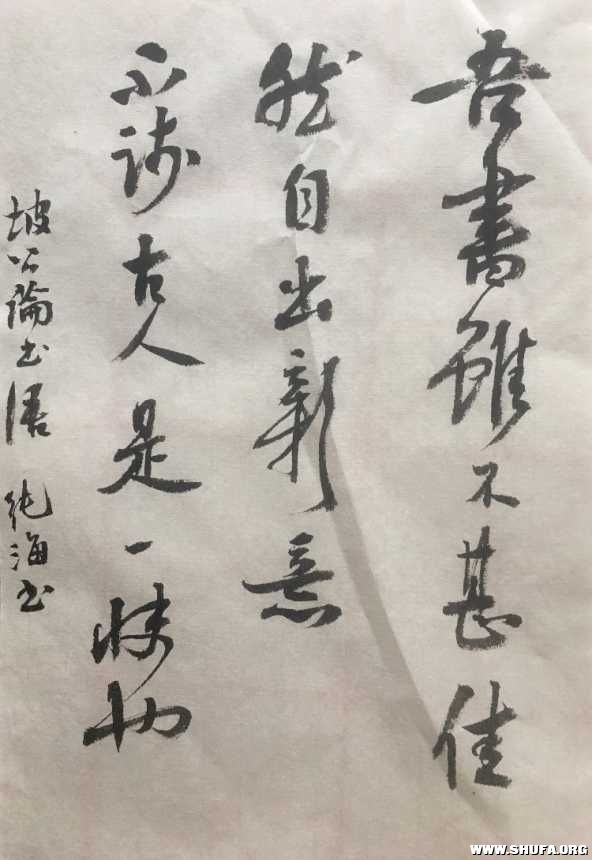 吾書雖不甚佳
然自出新意
不践古人是一快也
坡公論書語 純海书
WWW.SHUFA.ORG